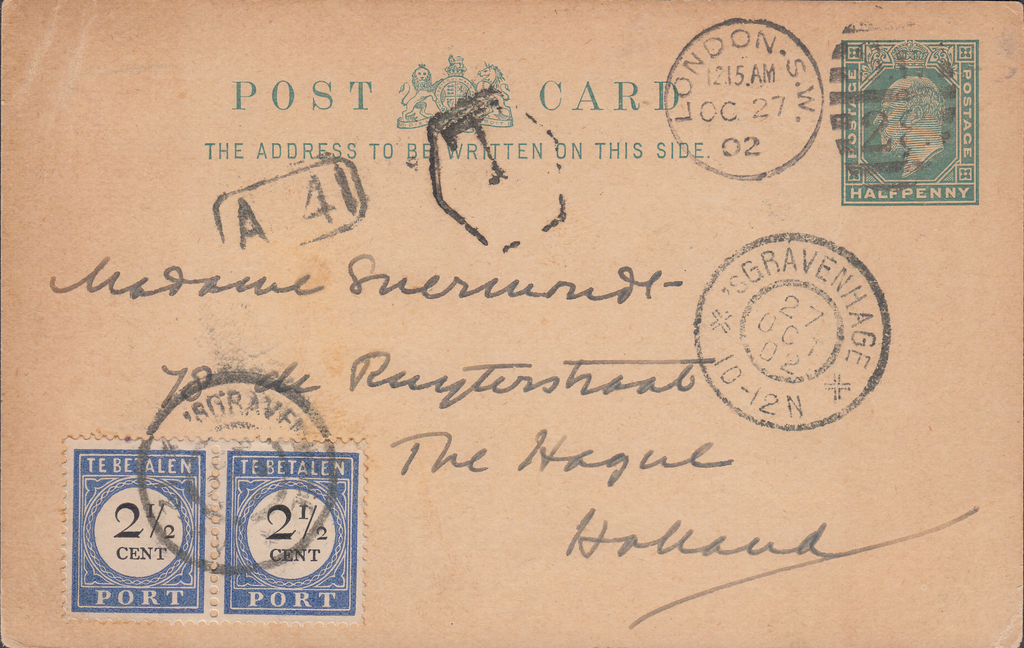 POST CARD
THE ADDRESS TO BE WRITTEN ON THIS SIDE.
LONDON.S.W.
12.15.AM
OC 27
02
28
POSTAGE POSTAGE
HALFPENNY
T
A 41
Madame Suermondt
'SGRAVENHAGE
27
OCT
02
10-12N
78 de Ruyterstraat
The Hague
Holland
'SGRAVEN
TE BETALEN TE BETALEN
2½ 2½
CENT CENT
PORT PORT